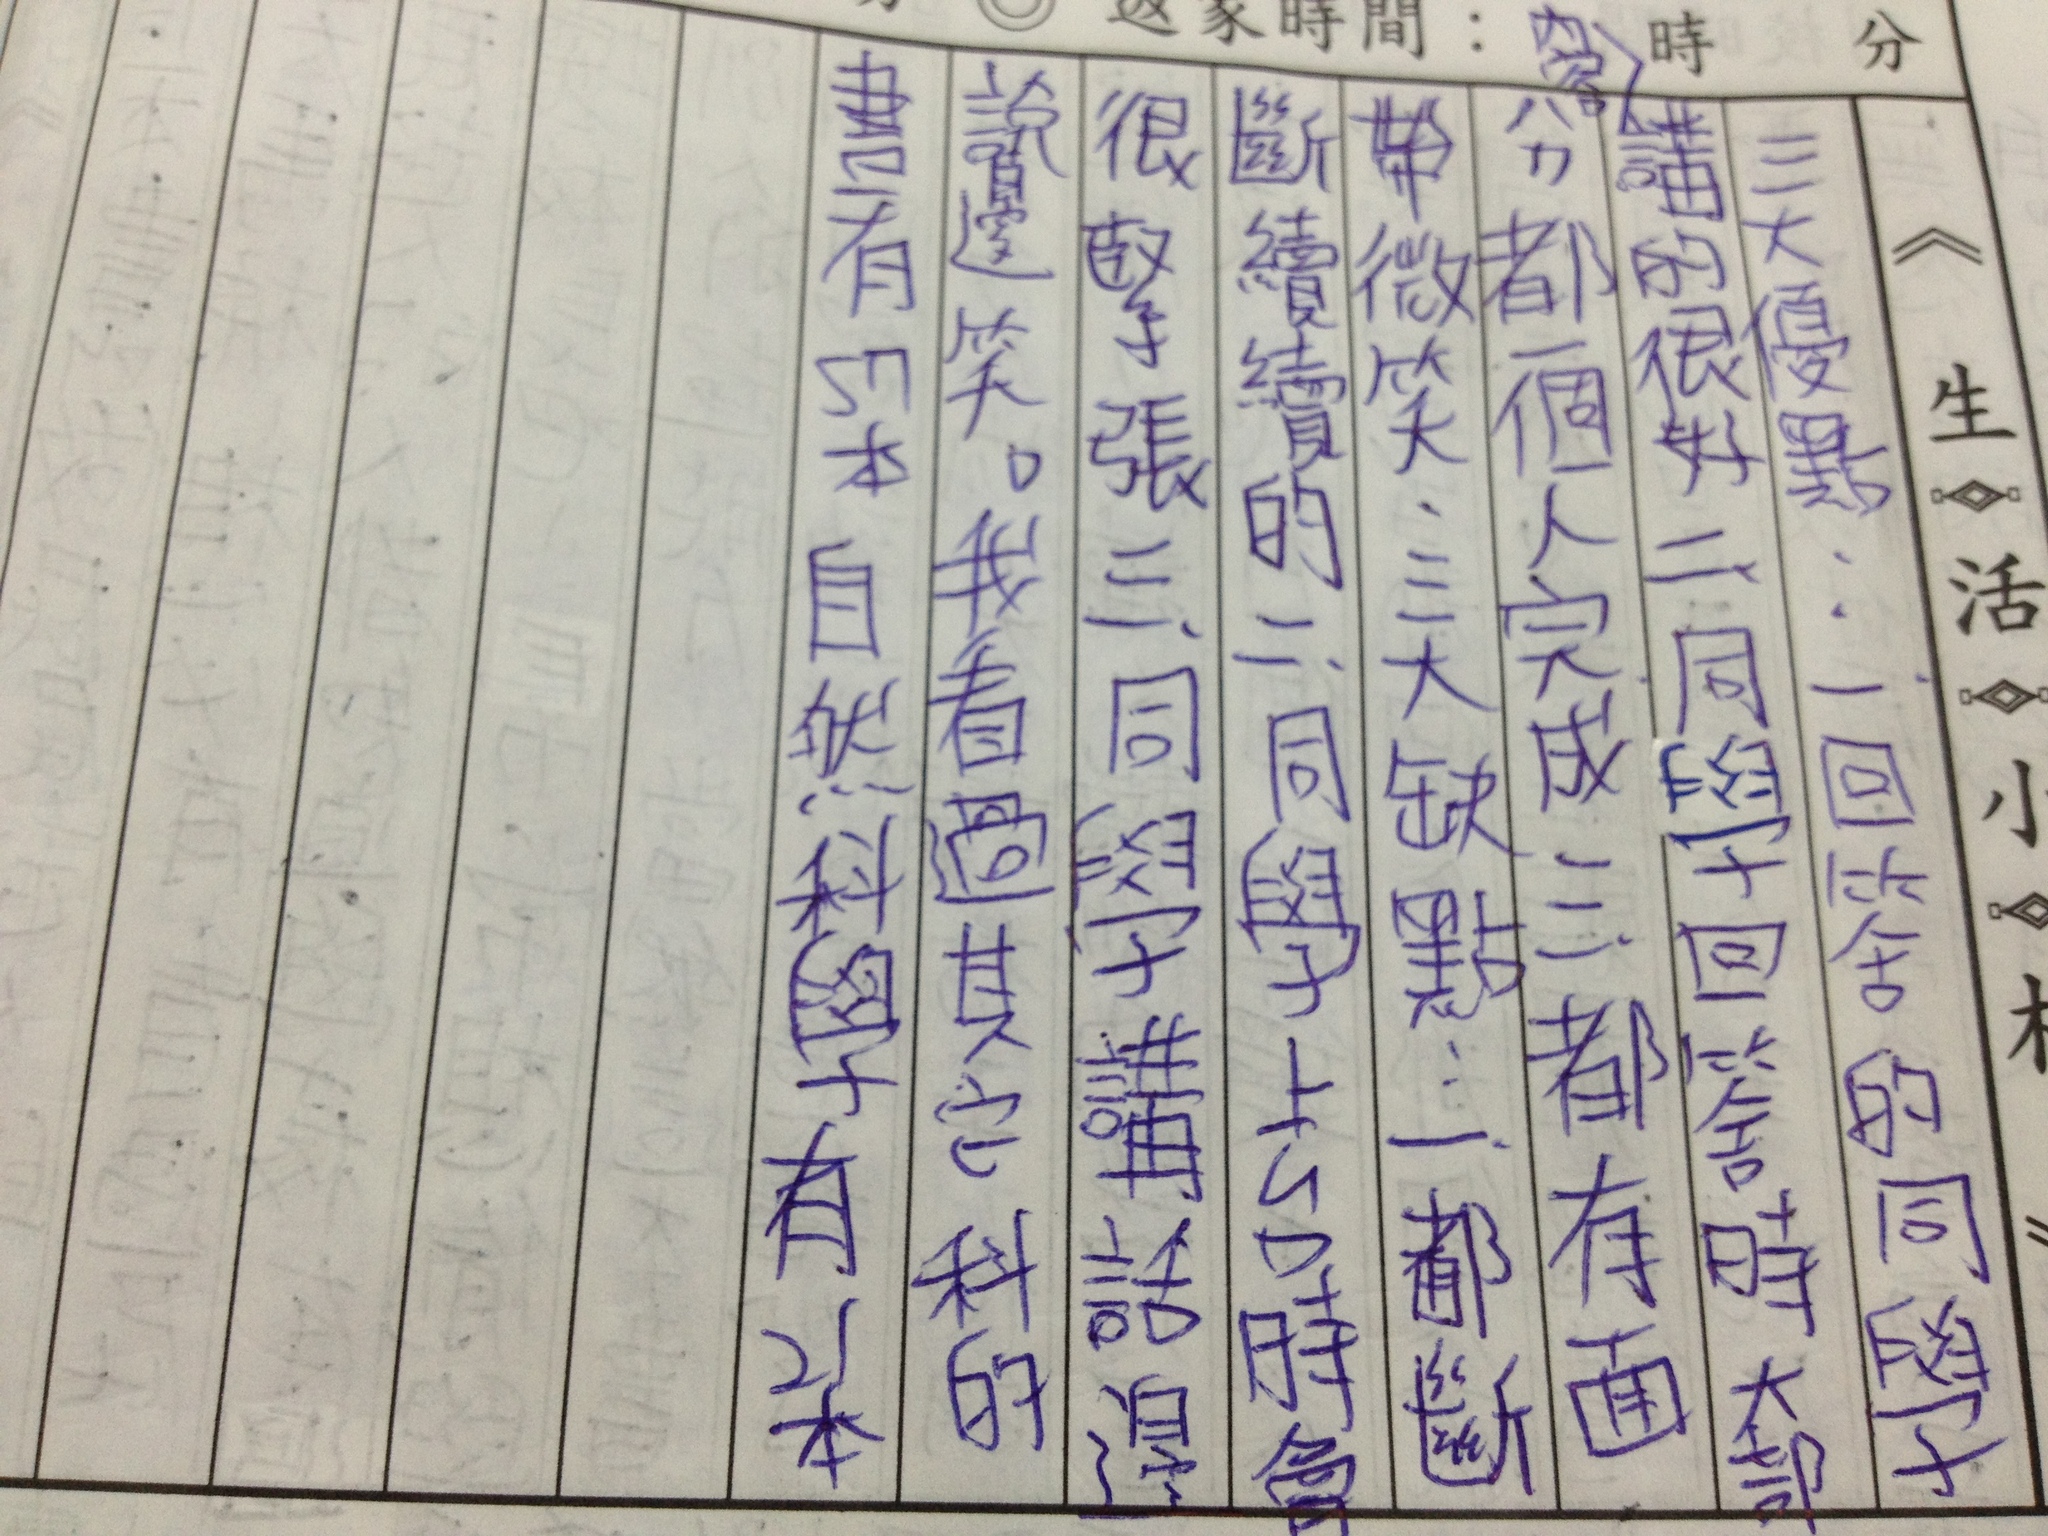 分 ◎ 返家時間： 時 分
《生活小札》
三大優點：一、回答的同學
內容講的很好二、同學回答時大部
分都個人完成三、都有面
帶微笑。三大缺點：一、都斷
斷續續的二、同學上台時會
很緊張三、同學講話邊
說邊笑。我看過其它科的
書有5本自然科學有2本